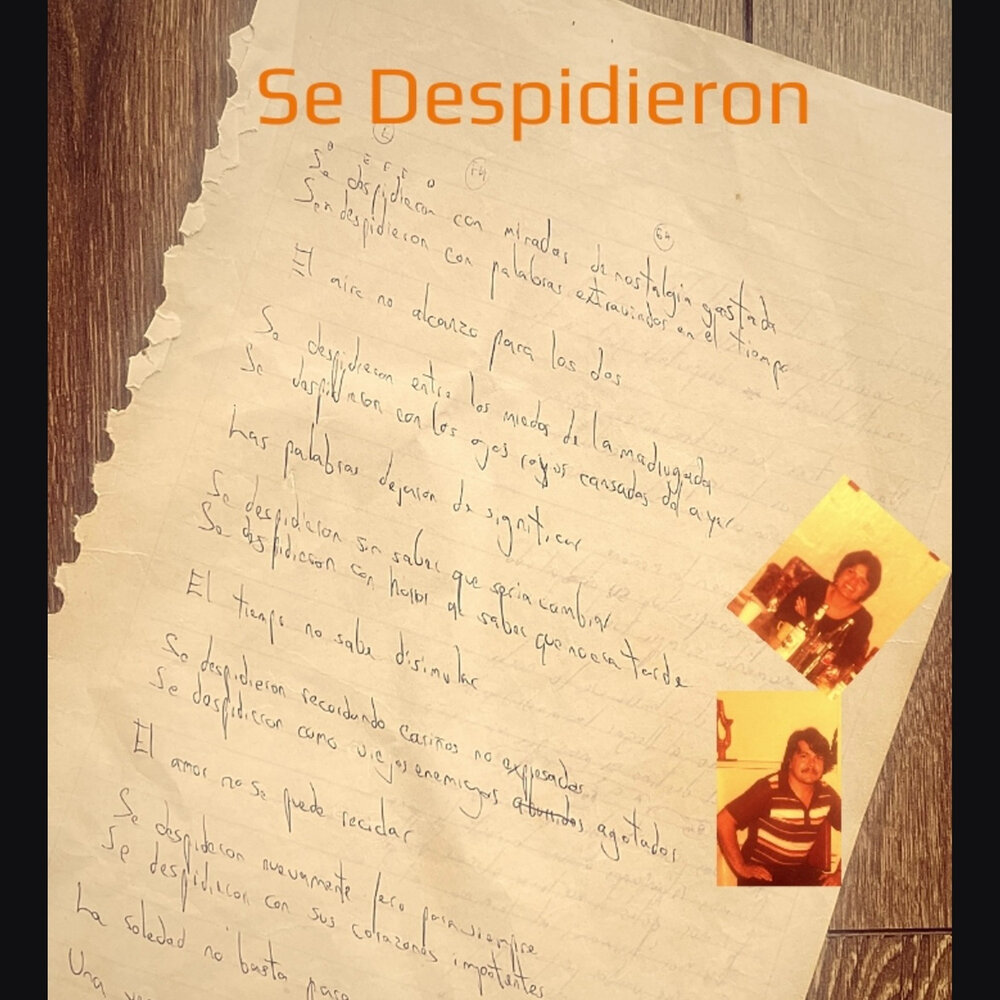 Se Despidieron
Se despidieron con miradas de nostalgia gastada
Se despidieron con palabras extraviadas en el tiempo
El aire no alcanzo para los dos
Se despidieron entre los miedos de la madrugada
Se despidieron con los ojos rojos cansados del ayer
Las palabras dejaron de significar
Se despidieron sin saber que seria cambiar
Se despidieron con horror al saber que no era tarde
El tiempo no sabe disimular
Se despidieron recordando cariños no expresados
Se despidieron como viejos enemigos aburridos agotados
El amor no se puede reciclar
Se despidieron nuevamente pero para siempre
Se despidieron con sus corazones impotentes
La soledad no basta para
Una